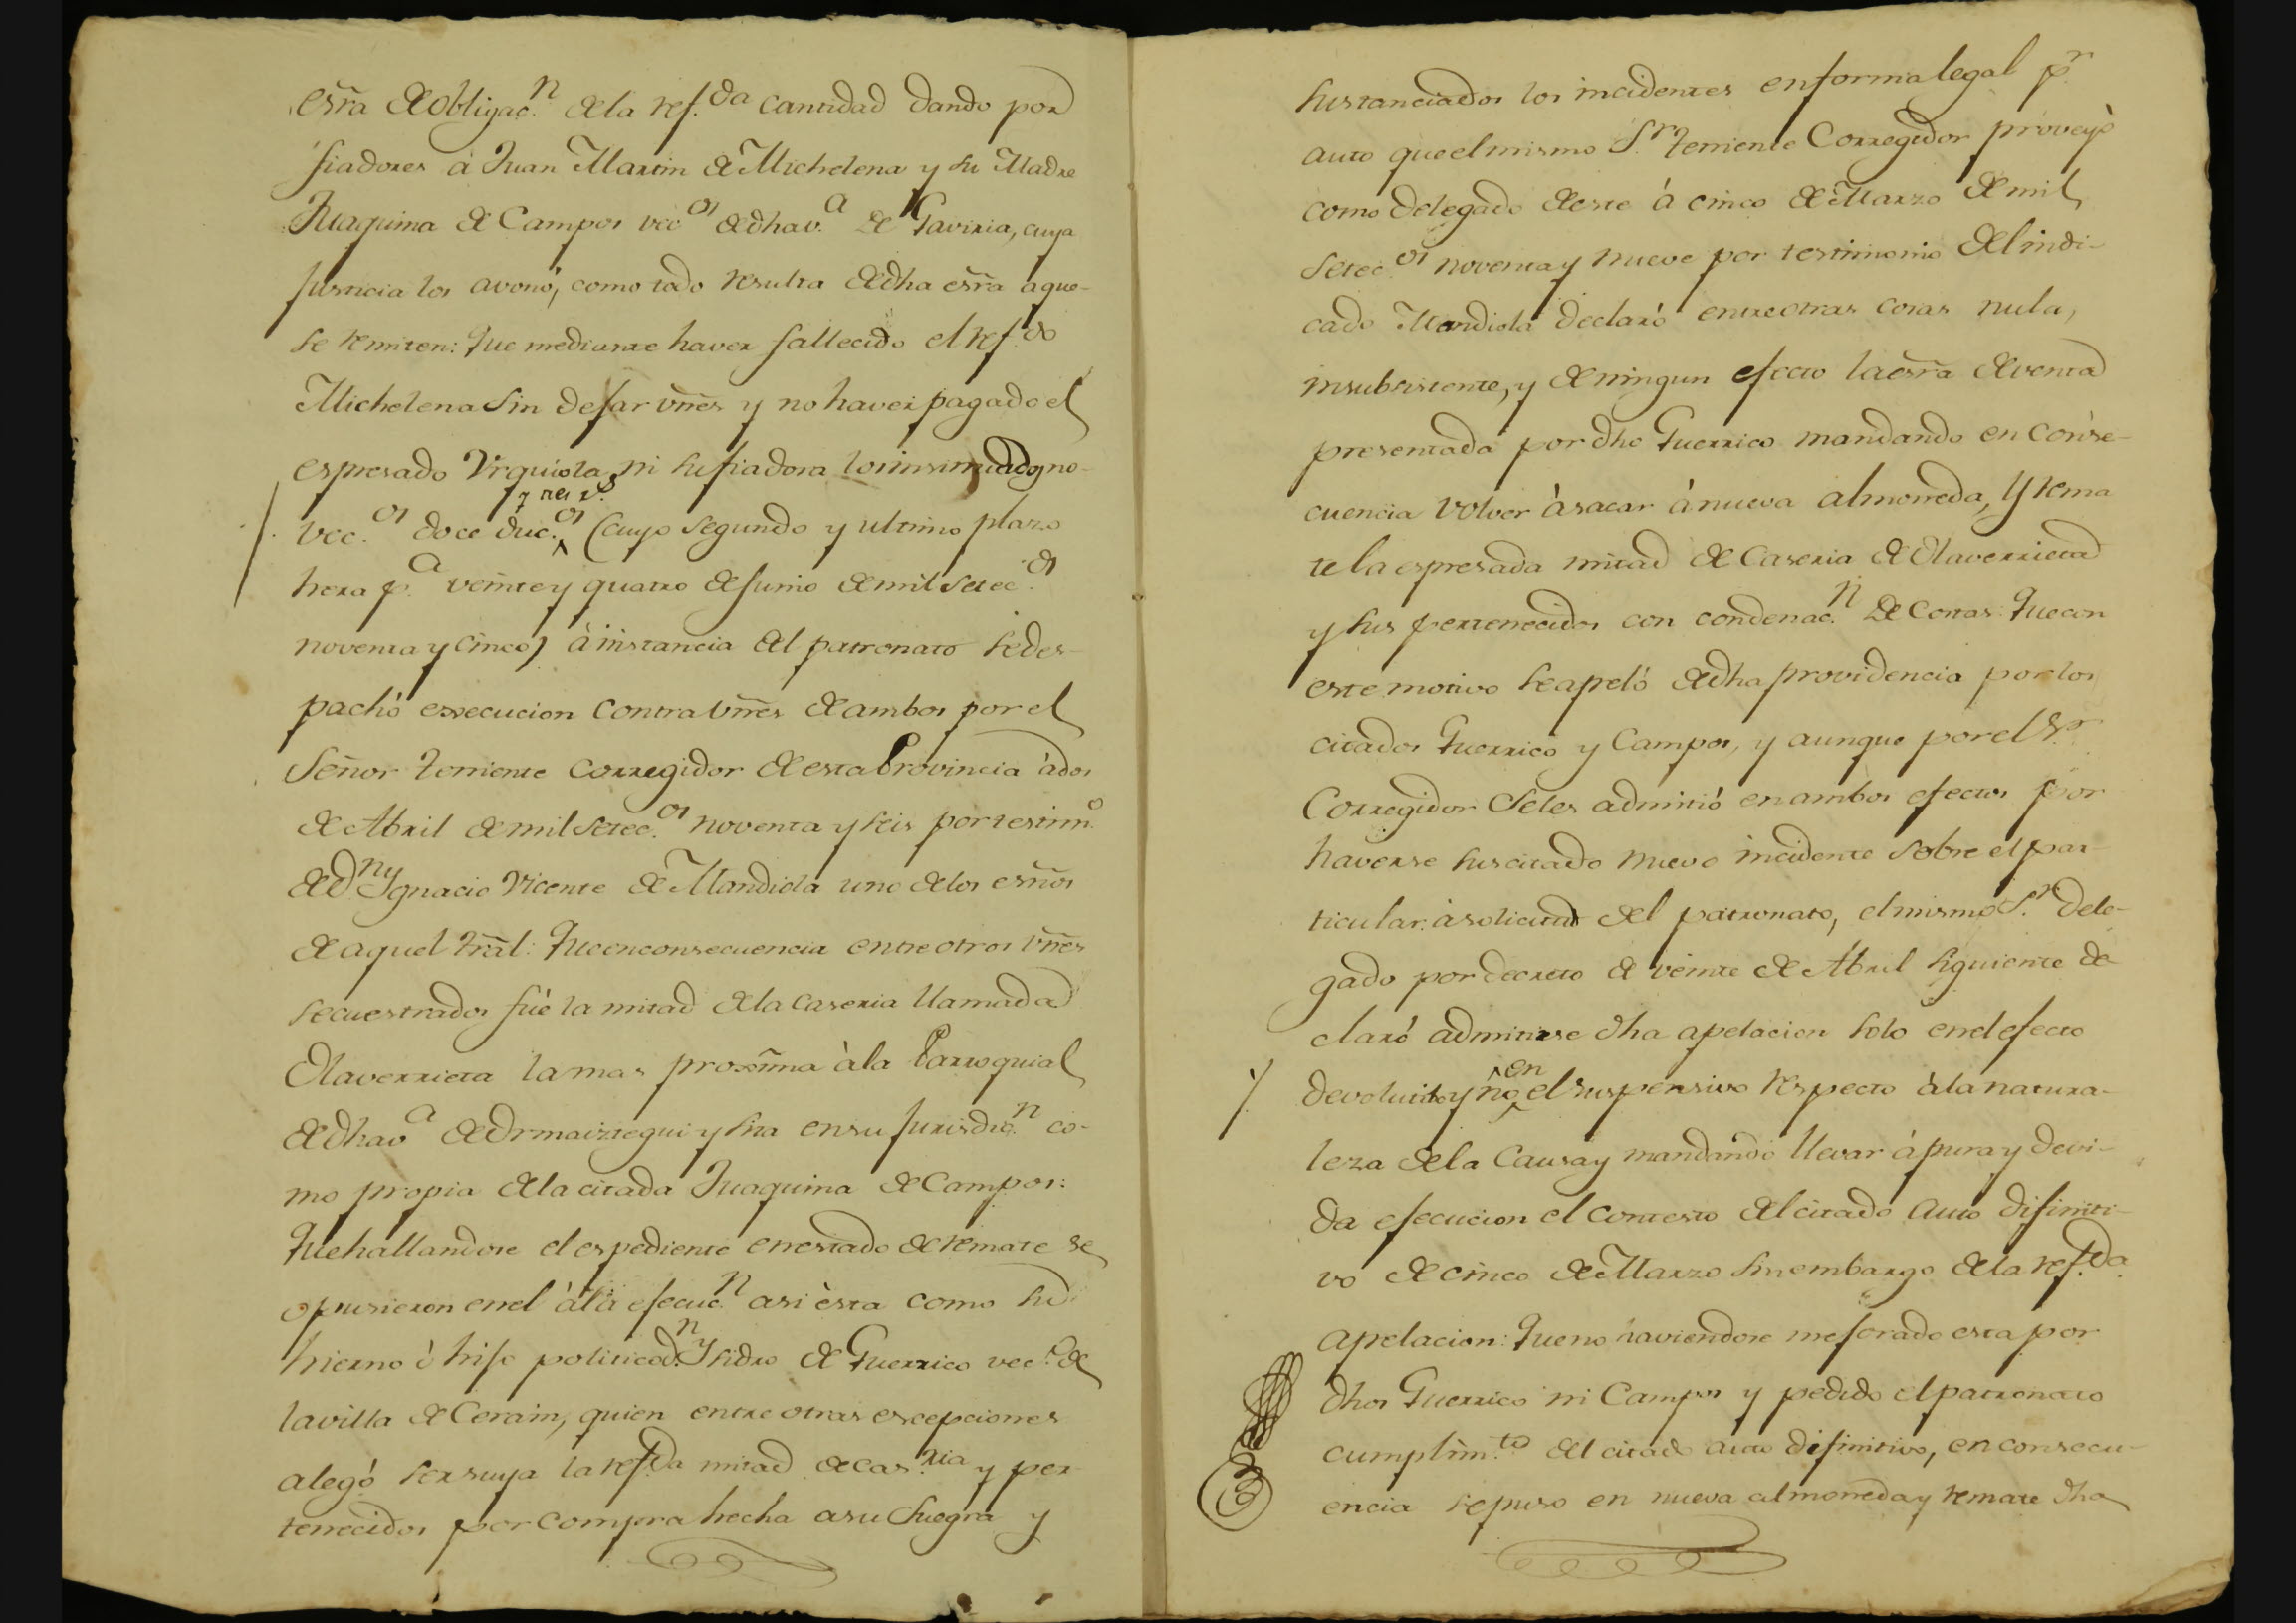 esr̃a de obligac.n de la ref.da cantidad dando por
fiadores á Juan Martin de Michelena y su Madre
Juaquina de Campos vec.os de dha v.a de Gaviria, cuya
Justicia los avonó, como todo resulta de dha esr̃a a que
se remiten: Que mediante haver fallecido el ref.do
Michelena sin dejar vñes y no haver pagado el
espresado Vrquiola, ni su fiadora los insinuados no-
vec.os doce duc.os y rei v.s (cuyo segundo y ultimo plazo
hera p.a veinte y quatro de Junio de mil setec.os
noventa y cinco) á instancia del patronato se des-
pachó execucion contra vñes de ambos por el
Señor Teniente Corregidor de esta Provincia á dos
de Abril de mil setec.os noventa y seis por testim.o
de d.n Ygnacio Vicente de Mandiola uno de los esñ̃os
de aquel trãl: Que en consecuencia entre otros vñes
secuestrados fué la mitad de la caseria llamada
Olaverrieta la mas proxĩma á la Parroquial
de dha v.a de Ormaiztegui y sita en su Jurisdic.n co-
mo propia de la citada Juaquina de Campos:
Que hallandose el espediente en estado de remate se
opusieron en el á la ejecuc.n asi ésta como su
hierno ó hijo politico d.n Ysidro de Guerrico vec.o de
la villa de Cerain, quien entre otras escepciones
alegó ser suya la ref.da mitad de cas.ria y per-
tenecidos por compra hecha a su Suegra y
sustanciados los incidentes en forma legal p.r
auto que el mismo S.r Teniente Corregidor proveyó
como Delegado de este á cinco de Marzo de mil
setec.os noventa y nueve por testimonio del indi-
cado Mandiola declaró entre otras cosas nula,
insubsistente, y de ningun efecto la esr̃a de venta
presentada por dho Guerrico mandando en conse-
cuencia volver á sacar á nueva almoneda, y rema
te la espresada mitad de Caseria de Olaverrieta
y sus pertenecidos con condenac.n de Costas: Que con
este motivo se apeló de dha providencia por los
citados Guerrico y Campos, y aunque por el S.r
Corregidor se les admitió en ambos efectos por
haverse suscitado nuevo incidente sobre el par-
ticular: á solicitud del patronato, el mismo S.r Dele-
gado por decreto de veinte de Abril siguiente de
claró admitirse dha apelacion solo en el efecto
devolutivo y no en el suspensivo respecto á la natura-
leza de la Causa y mandando llevar á pura y devi-
da ejecucion el contesto del citado Auto difiniti-
vo de cinco de Marzo sin embargo de la ref.da
apelacion: Que no haviendose mejorado esta por
dhos Guerrico ni Campos y pedido el patronato
cumplim.to del citado auto difinitivo, en consecu-
encia se puso en nueva almoneda y remate dha